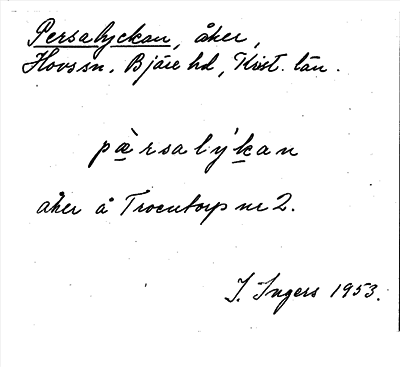 Persalyckan, åker,
Hovs sn, Bjäre hd, Krist. län.
pæ̀rsalýkan
åker å Trocntorp nr 2.
I. Ingers 1953.